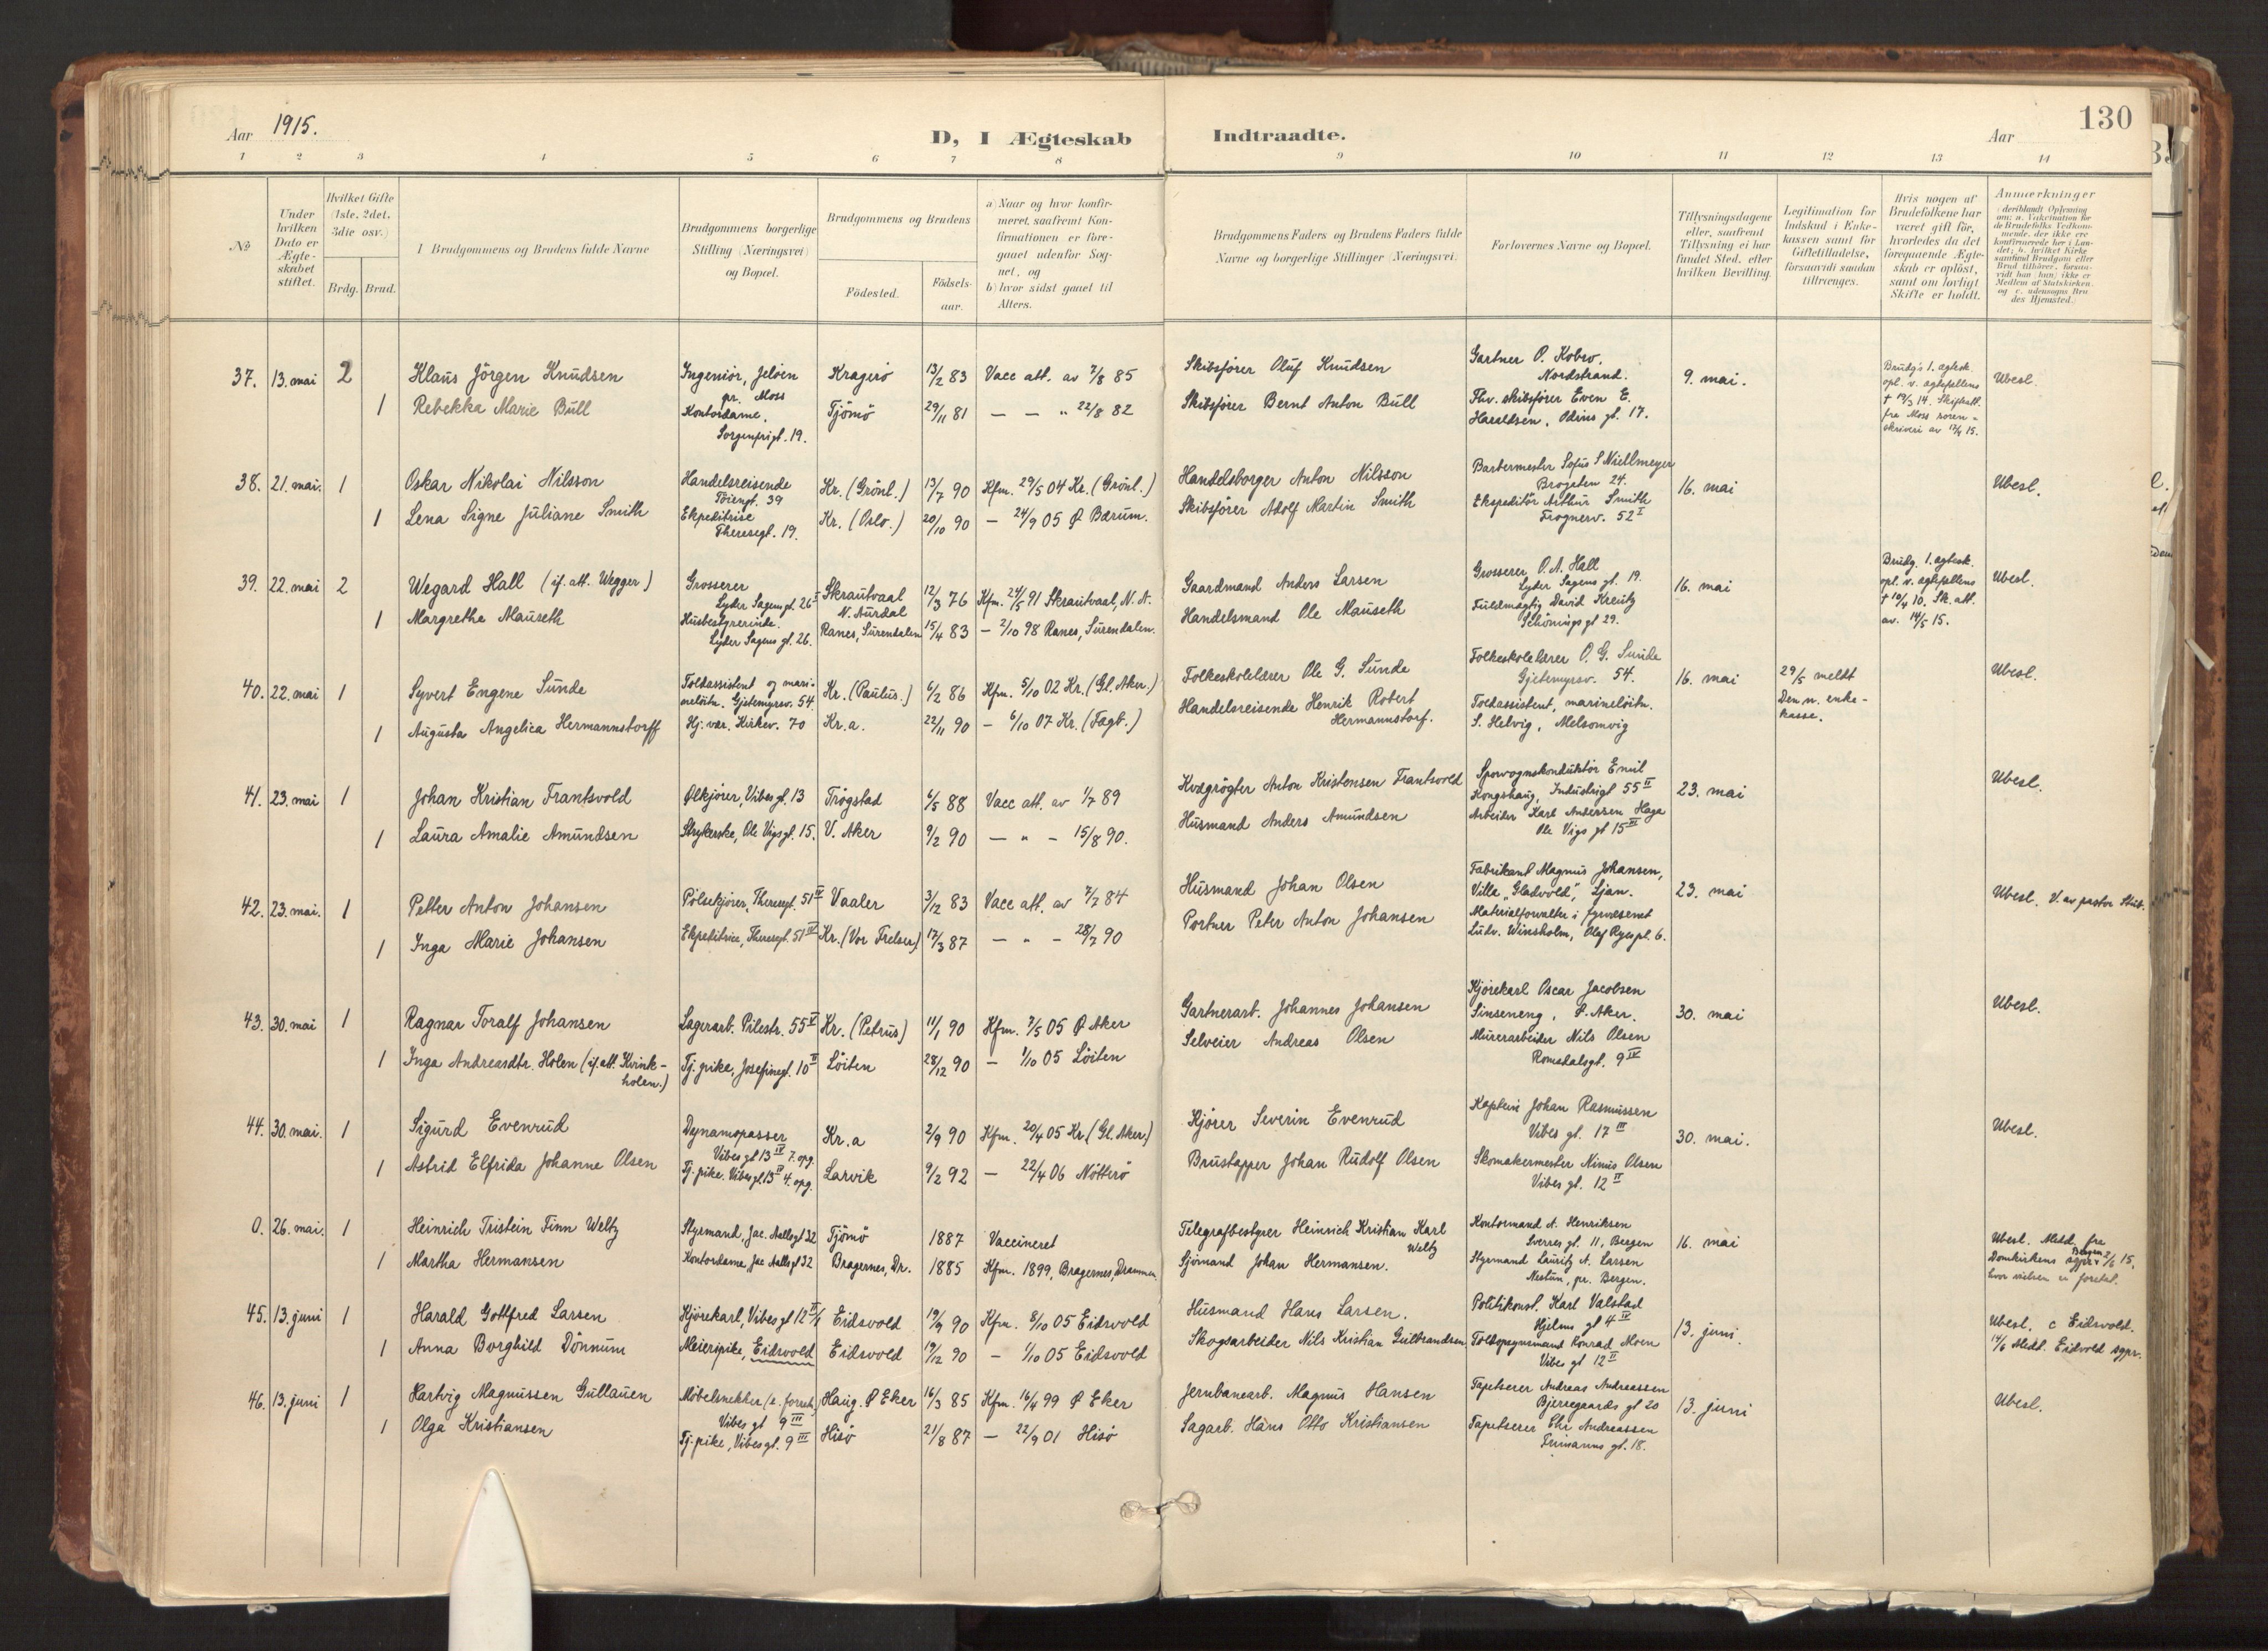 130
Aar 1915.
D, I Ægteskab Indtraadte.
Aar
1 2 3 4 5 6 7 8 9 10 11 12 13 14
№
Under hvilken Dato er Ægteskabet stiftet.
Hvilket Gifte (1ste, 2det, 3die osv.)
Brdg. Brud.
I Brudgommens og Brudens fulde Navne
Brudgommens borgerlige Stilling (Næringsvei) og Bopæl.
Brudgommens og Brudens
Födested.
Födselsaar.
a) Naar og hvor konfirmeret, saafremt Konfirmationen er foregaaet udenfor Sognet, og
b) hvor sidst gaaet til Alters.
Brudgommens Faders og Brudens Faders fulde Navne og borgerlige Stillinger (Næringsvei)
Forlovernes Navne og Bopæl.
Tillysningsdagene eller, saafremt Tillysning ei har fundet Sted, efter hvilken Bevilling.
Legitimation for Indskud i Enkekassen samt for Giftetilladelse, forsaavidt saadan tiltrænges.
Hvis nogen af Brudefolkene har været gift för, hvorledes da det foregaaende Ægteskab er oplöst, samt om lovligt Skifte er holdt.
Anmærkninger
(deriblandt Oplysning om: a. Vakcination for de Brudefolks Vedkommende, der ikke ere konfirmerede her i Landet; b. hvilket Kirkesamfund Brudgom eller Brud tilhörer, forsaavidt han (hun) ikke er Medlem af Statskirken, og c. udensogns Brudes Hjemsted.)
37. 13. mai 2 Klaus Jörgen Knudsen Ingeniör, Jelöen pr. Moss Kragerö 13/2 83 Vacc att. av 7/8 85 Skibsförer Oluf Knudsen Gartner O. Kobro. Nordstrand. 9. mai. Brudg's 1. egtesk. opl. v. egtefellens † 19/3 14. Skifteatt. fra Moss sorenskriveri av 17/4 15. Ubesl.
1 Rebekka Marie Bull Kontordame. Sorgenfrigt. 19. Tjömö 29/11 81 — — " 22/8 82 Skibsförer Bernt Anton Bull Fhv. skibsförer Even E. Haraldsen, Odins gt. 17.
38. 21. mai. 1 Oskar Nikolai Nilsson Handelsreisende Töiengt. 39 Kr. (Grönl.) 13/7 90 Kfm. 29/5 04 Kr. (Grönl.) Handelsborger Anton Nilsson Barbermester Sofus S Niellmeyer Brogaten 24. 16. mai Ubesl.
1 Lena Signe Juliane Smith Ekspeditrise Theresegt. 19. Kr. (Oslo.) 20/10 90 — 24/9 05 Ø Bærum. Skibsförer Adolf Martin Smith Ekspeditör Arthur Smith Frognerv. 52 I
39. 22. mai 2 Wegard Hall (if. att. Wegger) Grosserer Lyder Sagens gt. 26 I Skrautvaal N. Aurdal 12/3 76 Kfm. 24/5 91 Skrautvaal, N. A. Gaardmand Anders Larsen Grosserer O. A. Hall Lyder Sagens gt. 19. 16. mai Brudg. 1. egtesk. opl. v. egtefellens † 10/4 10. Sk. att. av. 14/5 15. Ubesl.
1 Margrethe Mauseth Husbestyrerinde. Lyder Sagens gt. 26. Ranes, Surendalen 15/4 83 — 2/10 98 Ranes, Surendalen. Handelsmand Ole Mauseth Fuldmægtig David Kreutz Schönings gt 29.
40. 22. mai 1 Syvert Engene Sunde Toldassistent og marinelöitn. Gjetemyrsv. 54. Kr. (Paulus.) 6/2 86 Kfm. 5/10 02 Kr. (Gl. Aker.) Folkeskolelærer Ole G. Sunde Folkeskolelærer O. G. Sunde Gjetemyrsv. 54. 16. mai 29/5 meldt Den n. enkekasse. Ubesl.
1 Augusta Angelica Hermannstorff Hj. vær. Kirkev. 70 Kr.a. 22/11 90 — 6/10 07 Kr. (Fagb.) Handelsreisende Henrik Robert Hermannstorf. Toldassistent, marinelöitn. S. Helvig, Melsomvig
41. 23. mai 1 Johan Kristian Frantsvold Ölkjörer, Vibes gt. 13 Trögstad 6/5 88 Vacc att. av 1/7 89 Kvægrögter Anton Kristensen Frantsvold Sporvognskonduktör Emil Kongshaug, Industrigt 55 II 23. mai Ubesl.
1 Laura Amalie Amundsen Strykerske, Ole Vigs gt. 15. V. Aker 9/2 90 — " — 15/8 90. Husmand Anders Amundsen Arbeider Karl Andersen Haga Ole Vigs gt 15 III
42. 23. mai. 1 Petter Anton Johansen Pölsekjörer, Theresegt. 51 IV Vaaler 3/12 83 Vacc att. av 7/7 84 Husmand Johan Olsen Fabrikant Magnus Johansen, Villa „Gladvold", Ljan. 23. mai Ubesl. V. av pastor Stub.
1 Inga Marie Johansen Ekspeditrice, Theresegt. 51 III Kr. (Vor Frelser) 17/3 87 — " — 28/7 90 Portner Peter Anton Johansen Materialforvalter i fyrvæsenet Ludv. Winsholm, Olaf Ryes pl. 6.
43. 30. mai 1 Ragnar Toralf Johansen Lagerarb. Pilestr. 55 V Kr. (Petrus) 11/1 90 Kfm. 7/5 05 Ø Aker Gartnerarb. Johannes Johansen Kjörekarl Oscar Jacobsen Sinseneng, Ø. Aker. 30. mai Ubesl.
1 Inga Andreasdtr. Holen (if. att. Kvinkholen.) Tj. pike, Josefinegt. 10 II Löiten 28/12 90 — 1/10 05 Löiten Selveier Andreas Olsen Murerarbeider Nils Olsen Romsdalsgt. 9 IV
44. 30. mai. 1 Sigurd Evenrud Dynamopasser Vibes gt 13 IV 7. opg. Kr.a 2/9 90 Kfm. 20/4 05 Kr. (Gl. Aker.) Kjörer Severin Evenrud Kaptein Johan Rasmussen Vibes gt. 17 III 30. mai. Ubesl.
1 Astrid Elfrida Johanne Olsen Tj. pike. Vibes gt. 13 II 4. opg. Larvik 9/2 92 — 22/4 06 Nötterö Brustapper Johan Rudolf Olsen Skomakermester Nimus Olsen Vibes gt. 12 II
0. 26. mai. 1 Heinrich Tristein Finn Weltz Styrmand, Jac. Aalls gt 32 Tjömö 1887 Vaccineret Telegrafbestyrer Heinrich Kristian Karl Weltz Kontormand A. Henriksen Sverres gt. 11, Bergen 16. mai Ubesl. Medd. fra Domkirkens sgpr. Bergen 2/6 15, hvor vielsen er foretat.
1 Martha Hermansen Kontordame, Jac Aalls gt 32 Bragernes, Dr. 1885 Kfm. 1899, Bragernes, Drammen Sjömand Johan Hermansen. Styrmand Lauritz A. Larsen Nestun, pr. Bergen.
45. 13. juni 1 Harald Gottfred Larsen Kjörekarl, Vibes gt 12 II/1 Eidsvold 19/9 90 Kfm. 8/10 05 Eidsvold Husmand Hans Larsen. Politikonst. Karl Valstad Hjelms gt 4 IV 13. juni. Ubesl. c Eidsvold.
1 Anna Borghild Dönnum Meieripike, Eidsvold Eidsvold 19/12 90 — 1/10 05 Eidsvold Skogsarbeider Nils Kristian Gulbrandsen Toldopsynsmand Konrad Moen Vibes gt 12 II 14/6 Medd. Eidvold sgpr.
46. 13. juni 1 Hartvig Magnussen Gullauen Möbelsnekker (e. forretn.) Vibes gt 9 III Haug. Ø Eker 16/3 85 Kfm. 16/4 99 Ø Eker Jernbanearb. Magnus Hansen Tapetserer Andreas Andreassen Bjerregaards gt 20 13. juni Ubesl.
1 Olga Kristiansen Tj. pike, Vibes gt. 9 III Hisö 21/8 87 — 22/9 01 Hisö Sagarb. Hans Otto Kristiansen Tapetserer Chr Andreassen Frimanns gt. 18.